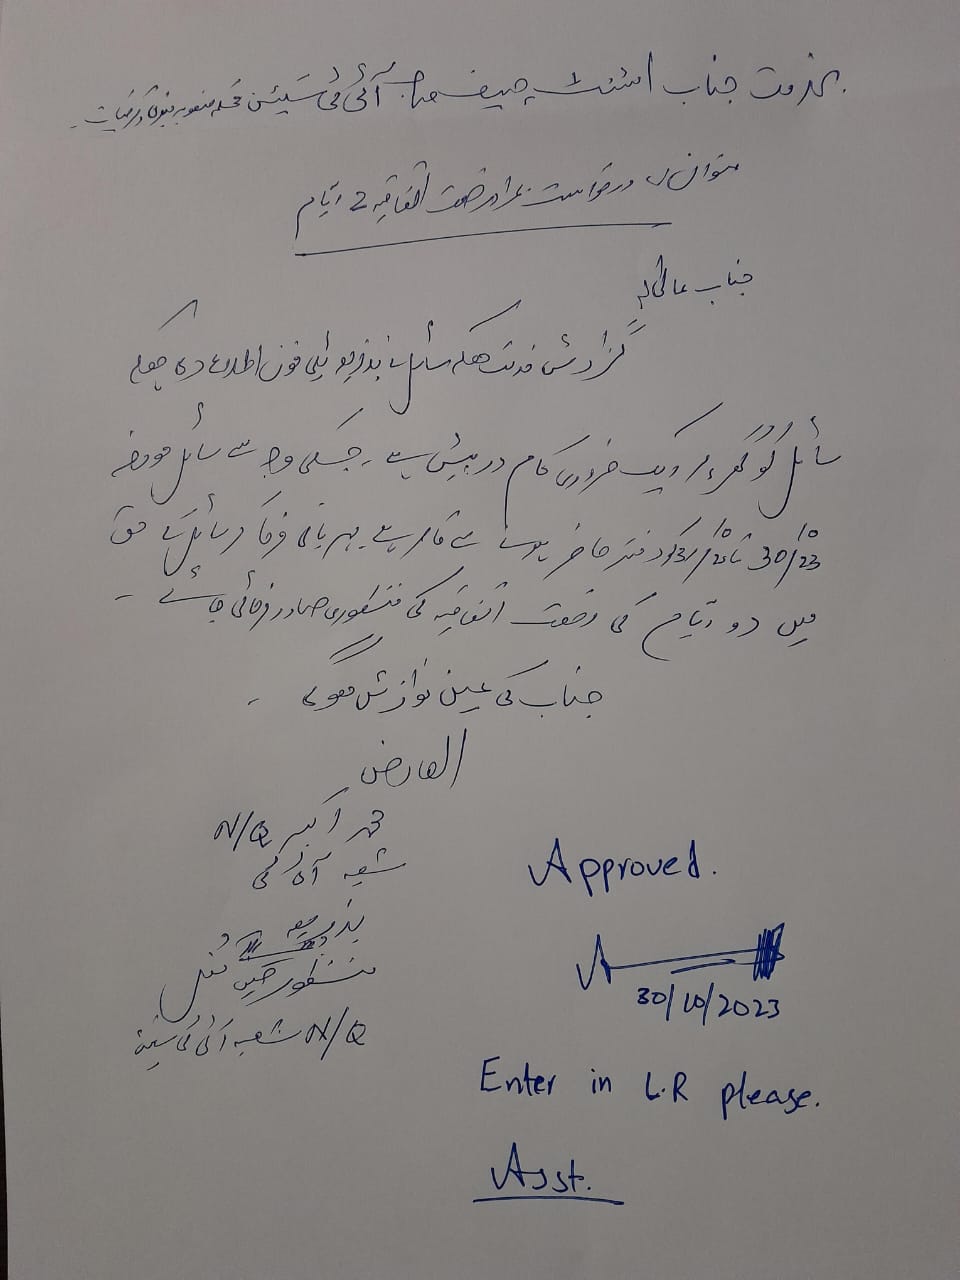 بخدمت جناب اسسٹنٹ چیف صاحب آئی ٹی سیکشن محکمہ منصوبہ بندی و ترقیات۔
عنوان:۔ درخواست بمراد رخصت اتفاقیہ 2 ایام
جناب عالی!
گزارش خدمت ہیکہ سائل نے بذریعہ ٹیلی فون اطلاع دی چھکے
سائل کو گھر پر ایک ضروری کام درپیش ہے۔ جسکی وجہ سے سائل مورخہ
30/10/23 تا 31/10/23 کو دفتر حاضر ہونے سے قاصر ہے۔ مہربانی فرما کر سائل کے حق
میں دو ایام کی رخصت اتفاقیہ کی منظوری صادر فرمائی جائے۔
جناب کی عین نوازش ہوگی۔
العارض
محمد اکبر N/Q
شعبہ آئی ٹی
بذریعہ
منظور حسین
N/Q شعبہ آئی ٹی سیکشن
Approved.
30/10/2023
Enter in L.R please.
Asst.